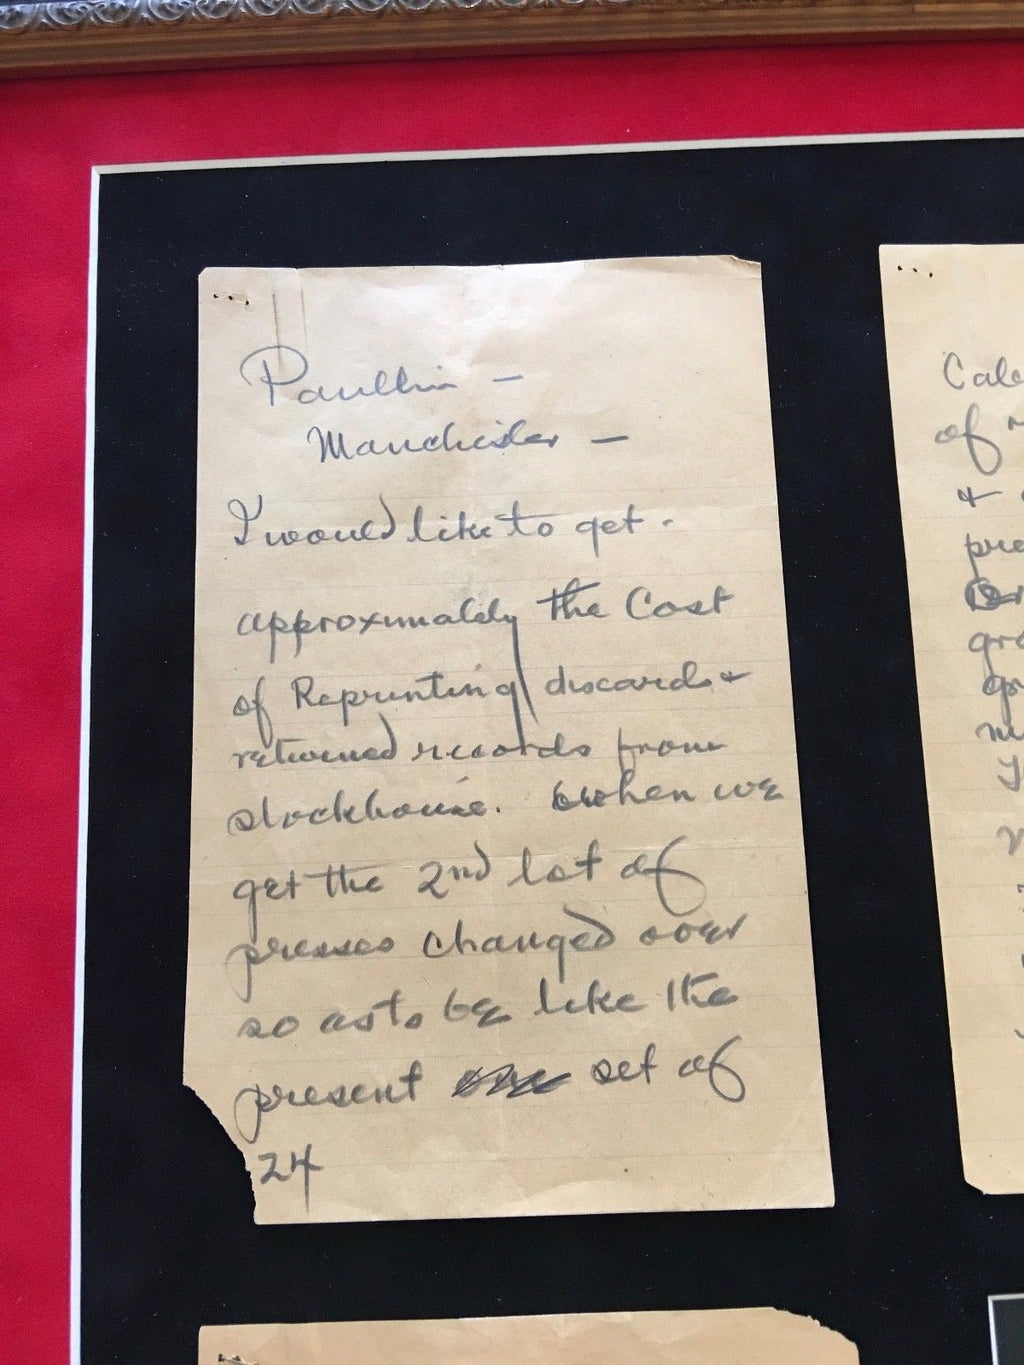 Paullin –
Manchester –
I would like to get.
approximately the Cost
of Reprinting discards &
returned records from
stockhouse. When we
get the 2nd lot of
presses changed over
so as to be like the
present set of
24
Cale
of
&
pre
gro